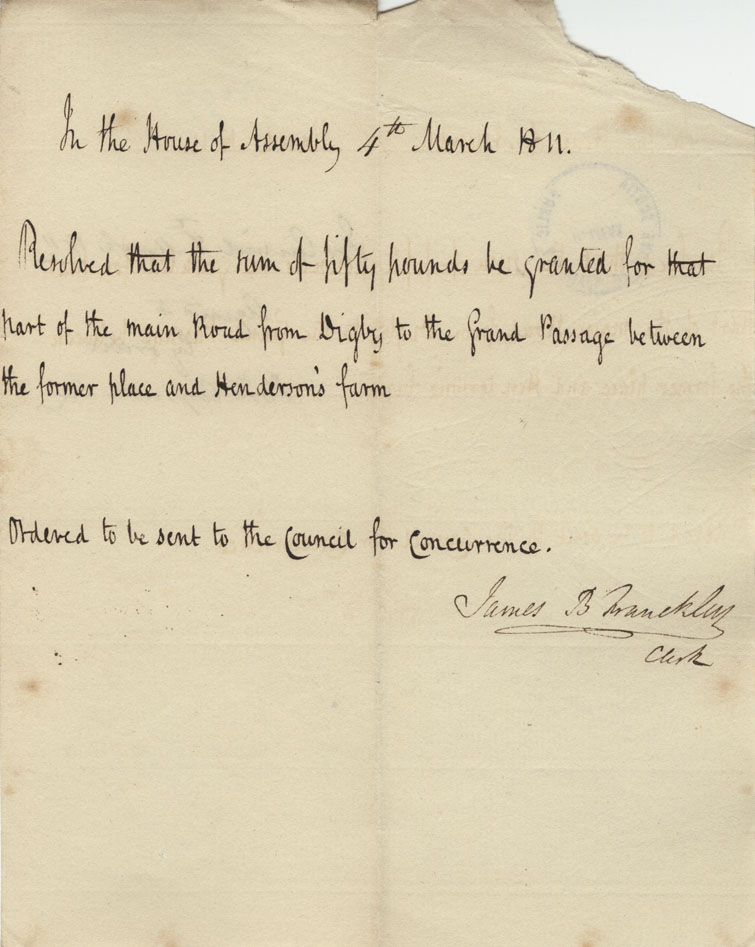 In the House of Assembly 4th March 1811.
Resolved that the sum of fifty pounds be granted for that
part of the main Road from Digby to the Grand Passage between
the former place and Henderson's farm
Ordered to be sent to the Council for Concurrence.
James B Francklin
Clerk